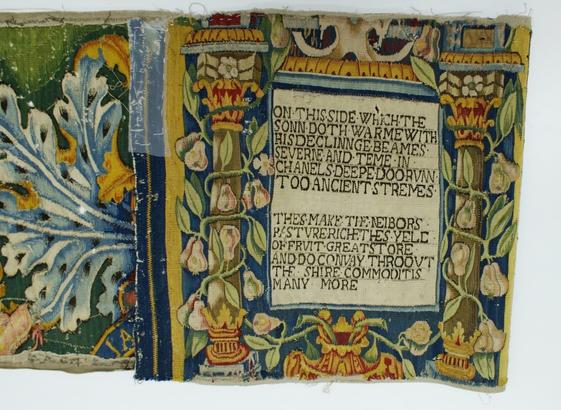 ON·THIS SIDE WHICH THE
SONN DOTH WARME WITH
HIS DECLINNGE BEAMES·
SEVERNE AND TEME·IN
CHANELS·DEEPE DO ORVNN·
TOO ANCIENT STREMES·
THES·MAKE·THE NEIBORS
PASTVRE RICHE THES YELD
OF FRVIT·GREAT STORE·
AND DO CONVAY THROOVT
THE·SHIRE COMMODITIS
MANY MORE